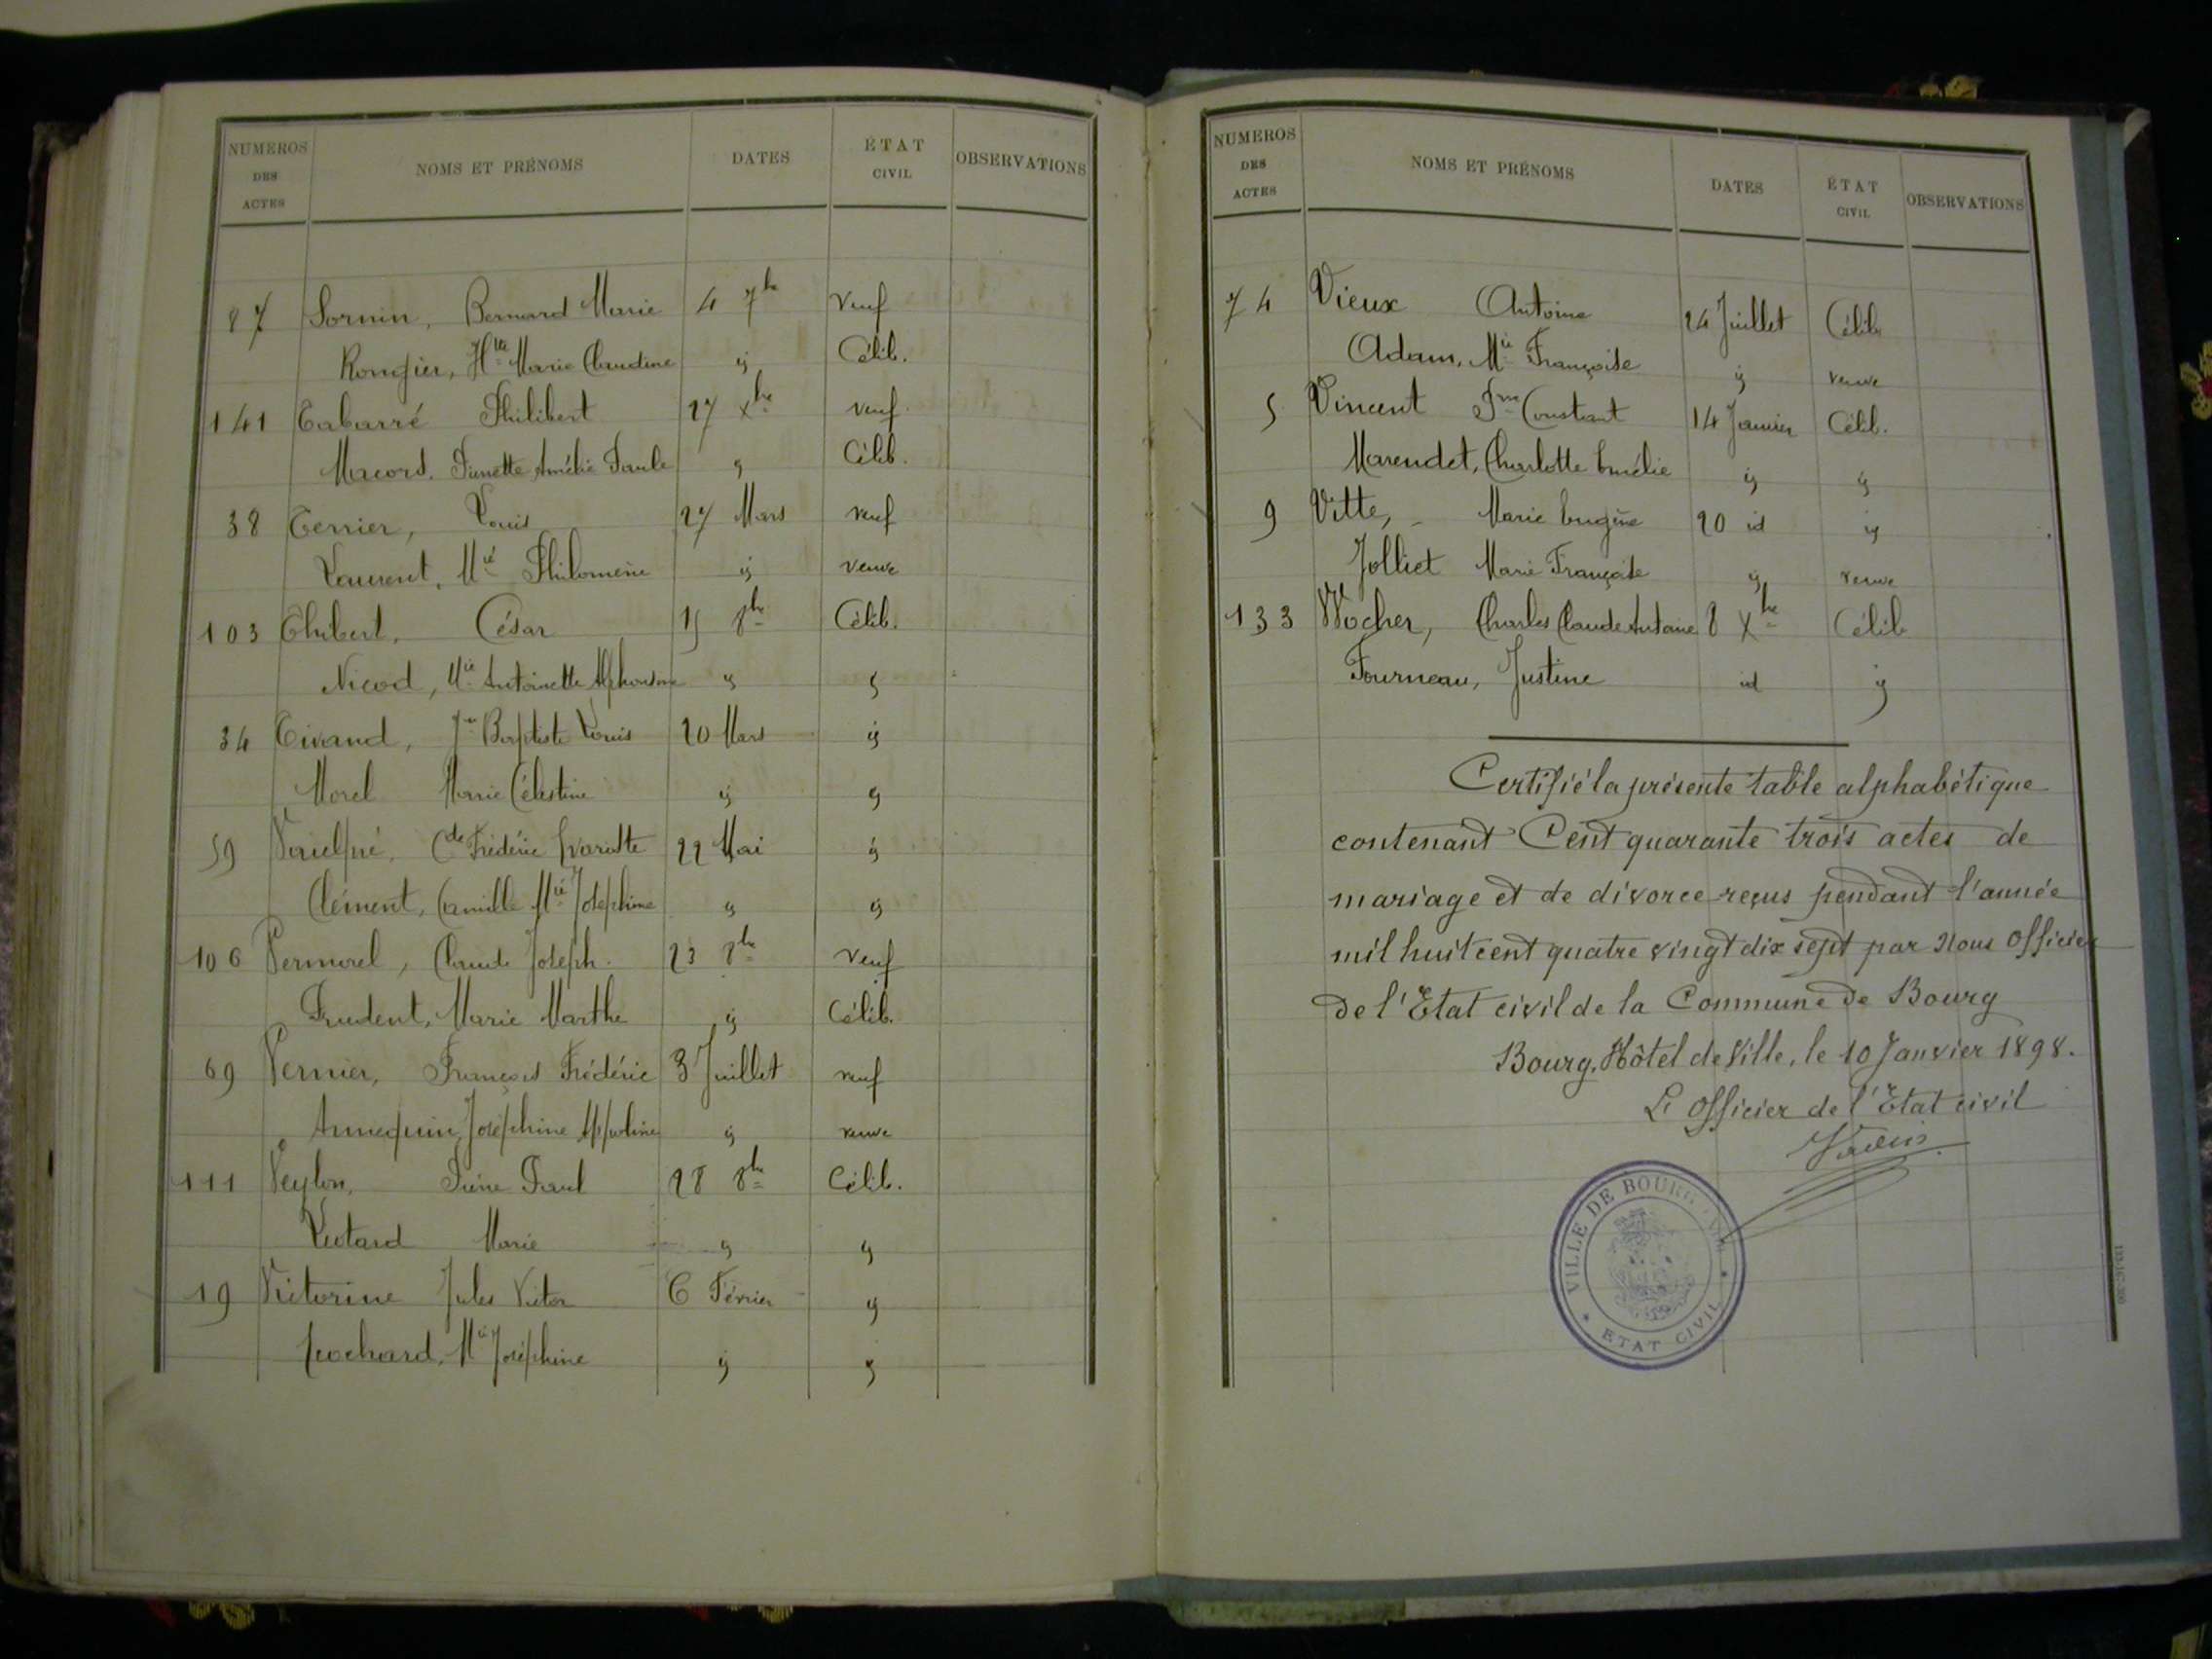 NUMEROS DES ACTES NOMS ET PRÉNOMS DATES ÉTAT CIVIL OBSERVATIONS
87 Sornin, Bernard Marie 4 7bre Veuf
Rongier, Marie Claudine id Célib.
141 Tabarré Philibert 27 Xbre veuf
Macord. Pierrette Amélie Paule id Célib.
38 Terrier, Louis 27 Mars veuf
Laurent, Mie Philomène id veuve
103 Thibert, César 15 8bre Célib.
Nicod, Mie Antoinette Alphonsine id id
34 Tivand, Jn Baptiste Louis 20 Mars id
Morel Marie Célestine id id
59 Cde Frédéric 22 Mai id
Clément, Camille Mie Joséphine id id
106 Vermorel, Claude Joseph. 23 8bre Veuf
Prudent, Marie Marthe id Célib.
69 Vernier, François Frédéric 3 Juillet veuf
Annequin, Joséphine Appoline id veuve
111 Veylon, Pierre Paul 28 8bre Célib.
Liotard Marie id id
19 Victorine Jules Victor 6 Février id
Mie Joséphine id id
NUMEROS DES ACTES NOMS ET PRÉNOMS DATES ÉTAT CIVIL OBSERVATIONS
74 Vieux Antoine 24 Juillet Célib.
Adam, Mie Françoise id veuve
5 Vincent Constant 14 Janvier Célib.
Marendet, Charlotte Emélie id id
9 Vitte, Marie Eugène 20 id id
Jolliet Marie Françoise id veuve
133 Wocher, Charles Claude Antoine 8 Xbre Célib
Fourneau, Justine id id
Certifié la présente table alphabétique
contenant Cent quarante trois actes de
mariage et de divorce reçus pendant l'année
mil huit cent quatre vingt dix sept par Nous Officier
de l'Etat civil de la Commune de Bourg
Bourg, Hôtel de Ville, le 10 Janvier 1898.
L'Officier de l'Etat civil
VILLE DE BOURG
ETAT CIVIL